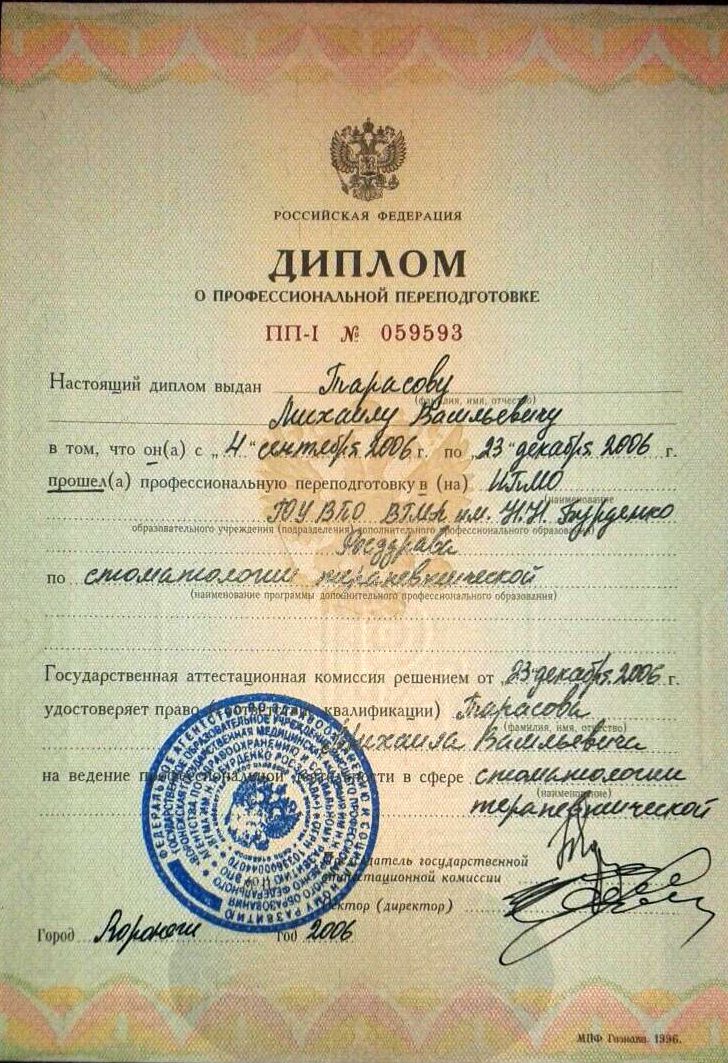 РОССИЙСКАЯ ФЕДЕРАЦИЯ
ДИПЛОМ
О ПРОФЕССИОНАЛЬНОЙ ПЕРЕПОДГОТОВКЕ
ПП-I № 059593
Настоящий диплом выдан Тарасову
(фамилия, имя, отчество)
Михаилу Васильевичу
в том, что он(а) с „4“ сентября 2006 г. по „23“ декабря 2006 г.
прошел(а) профессиональную переподготовку в (на) ИПМО
(наименование
ГОУ ВПО ВГМА им. Н.Н. Бурденко
образовательного учреждения (подразделения) дополнительного профессионального образования)
Росздрава
по стоматологии терапевтической
(наименование программы дополнительного профессионального образования)
Государственная аттестационная комиссия решением от „23“ декабря 2006 г.
удостоверяет право (соответствие квалификации) Тарасова
(фамилия, имя, отчество)
Михаила Васильевича
на ведение профессиональной деятельности в сфере стоматологии
(наименование)
терапевтической
Председатель государственной
аттестационной комиссии
Ректор (директор)
Город Воронеж Год 2006
МПФ Гознака. 1996.